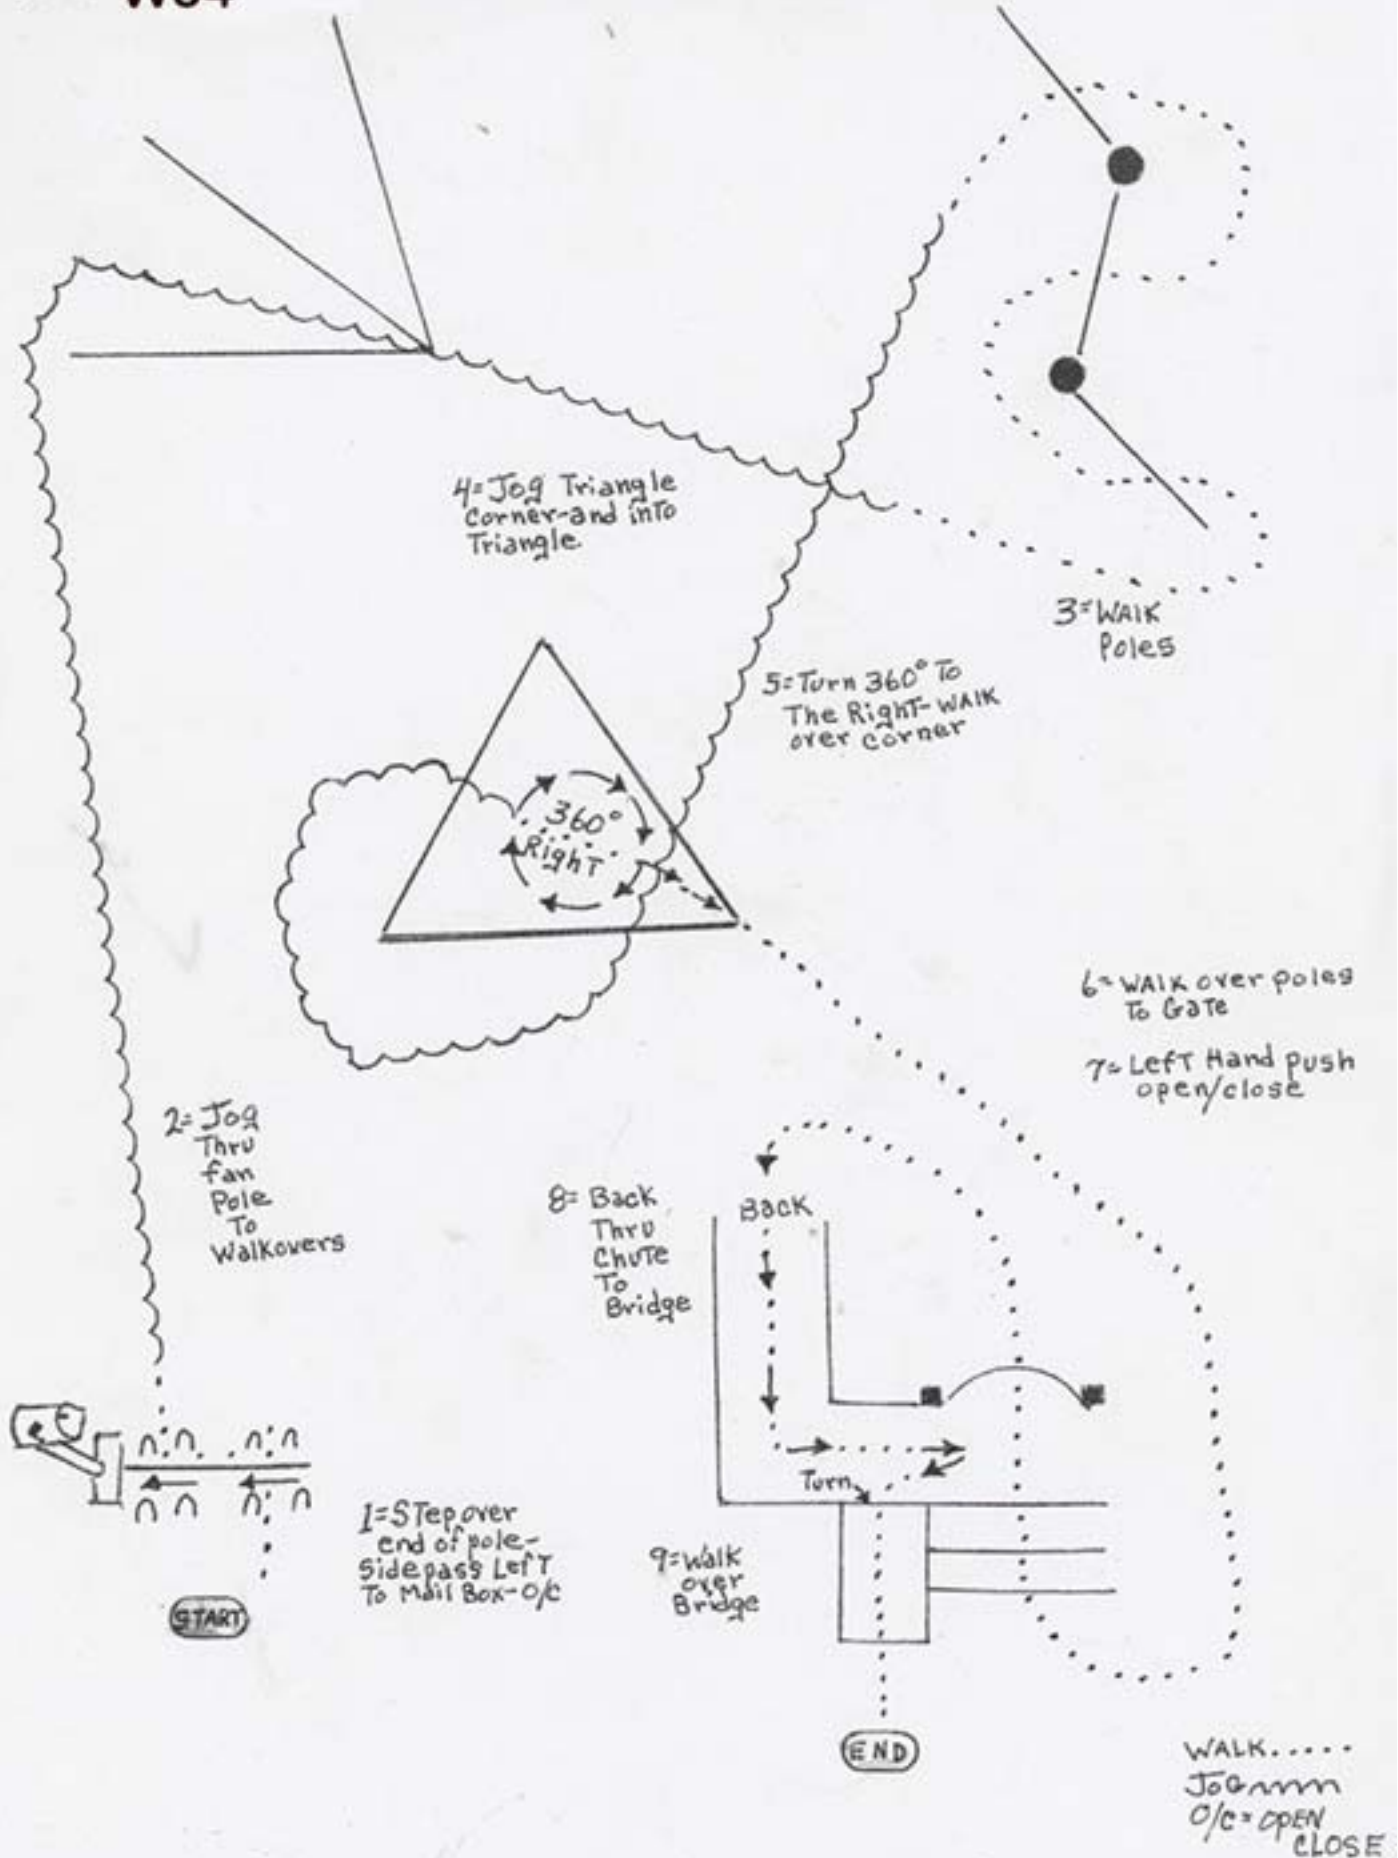 4= Jog Triangle
Corner-and into
Triangle.
3= WALK
Poles
5= Turn 360° To
The Right-WALK
over corner
360°
Right
6= WALK over poles
To Gate
7= Left Hand push
open/close
2= Jog
Thru
fan
Pole
To
Walkovers
8= Back
Thru
Chute
To
Bridge
Back
Turn
1= Step over
end of pole-
Sidepass Left
To Mail Box-O/C
9= Walk
over
Bridge
START
END
WALK.....
JOG
O/C = OPEN
CLOSE